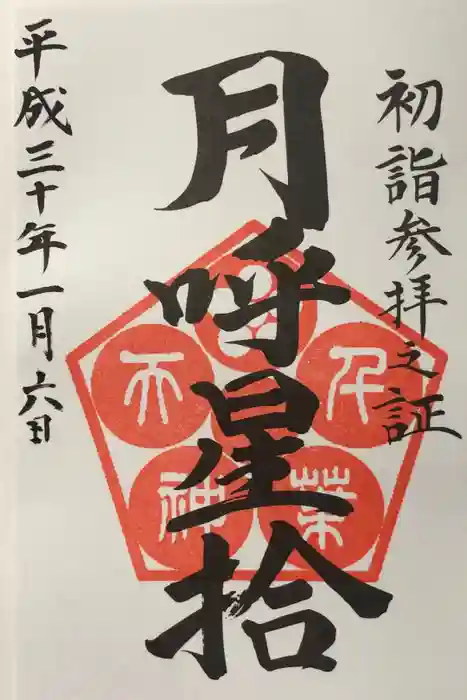 初詣参拝之証
月呼星拾
千葉
天神
平成三十年一月六日